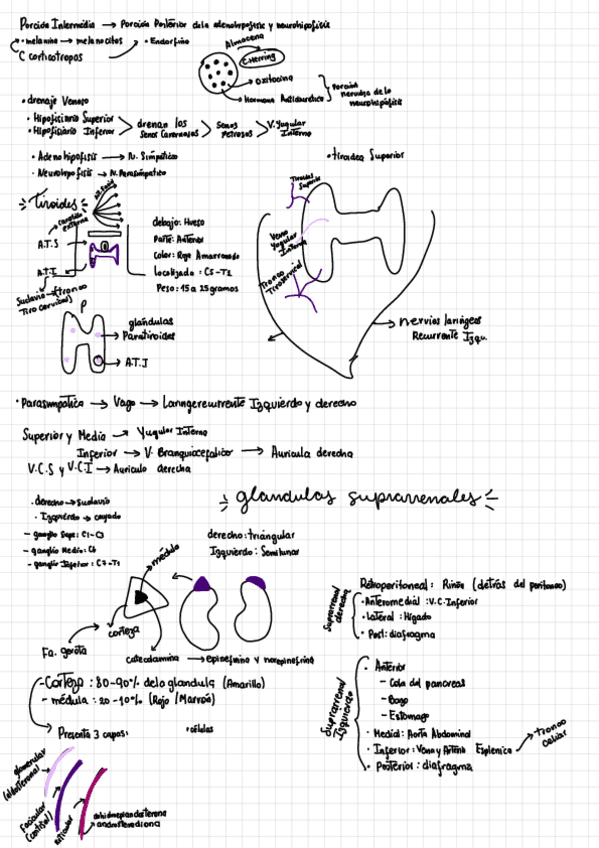 Porción Intermedia → Porción Posterior de la adenohipofisis y neurohipofisis
• melanina → melanocitos
• Endorfina
C corticotropos
Almacena
C. Herring
→ oxitocina
→ Hormona Antidiuretica
Porción nerviosa de la neurohipófisis
• drenaje Venoso
• Hipofisiario Superior
• Hipofisiario Inferior
drenan los Senos Cavernosos
Senos Petrosos
V. Yugular Interna
• Adenohipofisis → N. Simpático
• Neurohipofisis → N. Parasimpatico
• tiroidea Superior
Tiroides
carotida externa
A.T.S
A.T.I
Suclavia → tronco Tiro cervical
debajo: Hueso
Parte: Anterior
Color: Rojo Amarronado
localizada: C5-T1
Peso: 15 a 25 gramos
Tiroidea Superior
Vena Yugular Interna
Tronco Tirocervical
→ nervios laríngeos Recurrente Izqu.
P
glándulas Paratiroides
→ A.T.I
• Parasimpatica → Vago → Laringerecurrente Izquierdo y derecho
Superior y Media → Yugular Interna
Inferior → V. Branquiocefalico → Auricula derecha
V.C.S y V.C.I → Auricula derecha
glandulas suprarrenales
• derecho → Suclavia
• Izquierdo → cayado
- ganglio Supe: C1-C3
- ganglio Medio: C6
- ganglio Inferior: C7-T1
derecho: triangular
Izquierdo: Semilunar
médula
corteza
Fa. gerota
catecolamina → epinefrina y norepinefrina
- Corteza: 80-90% de la glandula (Amarillo)
- médula: 20-10% (Rojo /Marrón)
Presenta 3 capas:
• células
glomerular (aldosterona)
Fascicular (cortisol)
reticular
androstenediona
Retroperitoneal: Riñón (detrás del peritoneo)
Suprarrenal derecha
• Anteromedial: V.C. Inferior
• lateral: Hígado
• Post: diafragma
Suprarrenal Izquierda
• Anterior
- Cola del pancreas
- Bazo
- Estomago
• Medial: Aorta Abdominal
• Inferior: Vena y Arteria Esplenica → tronco celiar
• Posterior: diafragma